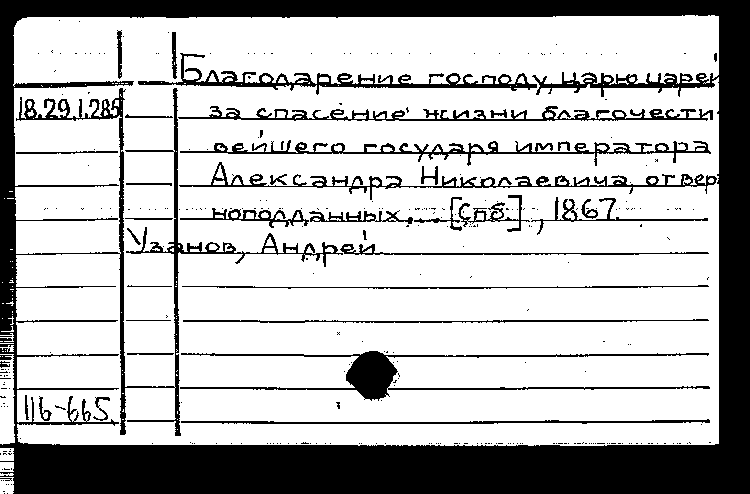 Благодарение господу, царю царей
18.29.1.285 за спасение жизни благочести
вейшего государя императора
Александра Николаевича, от вер
ноподданных,... [Спб.], 1867.
Узанов, Андрей
116-665.